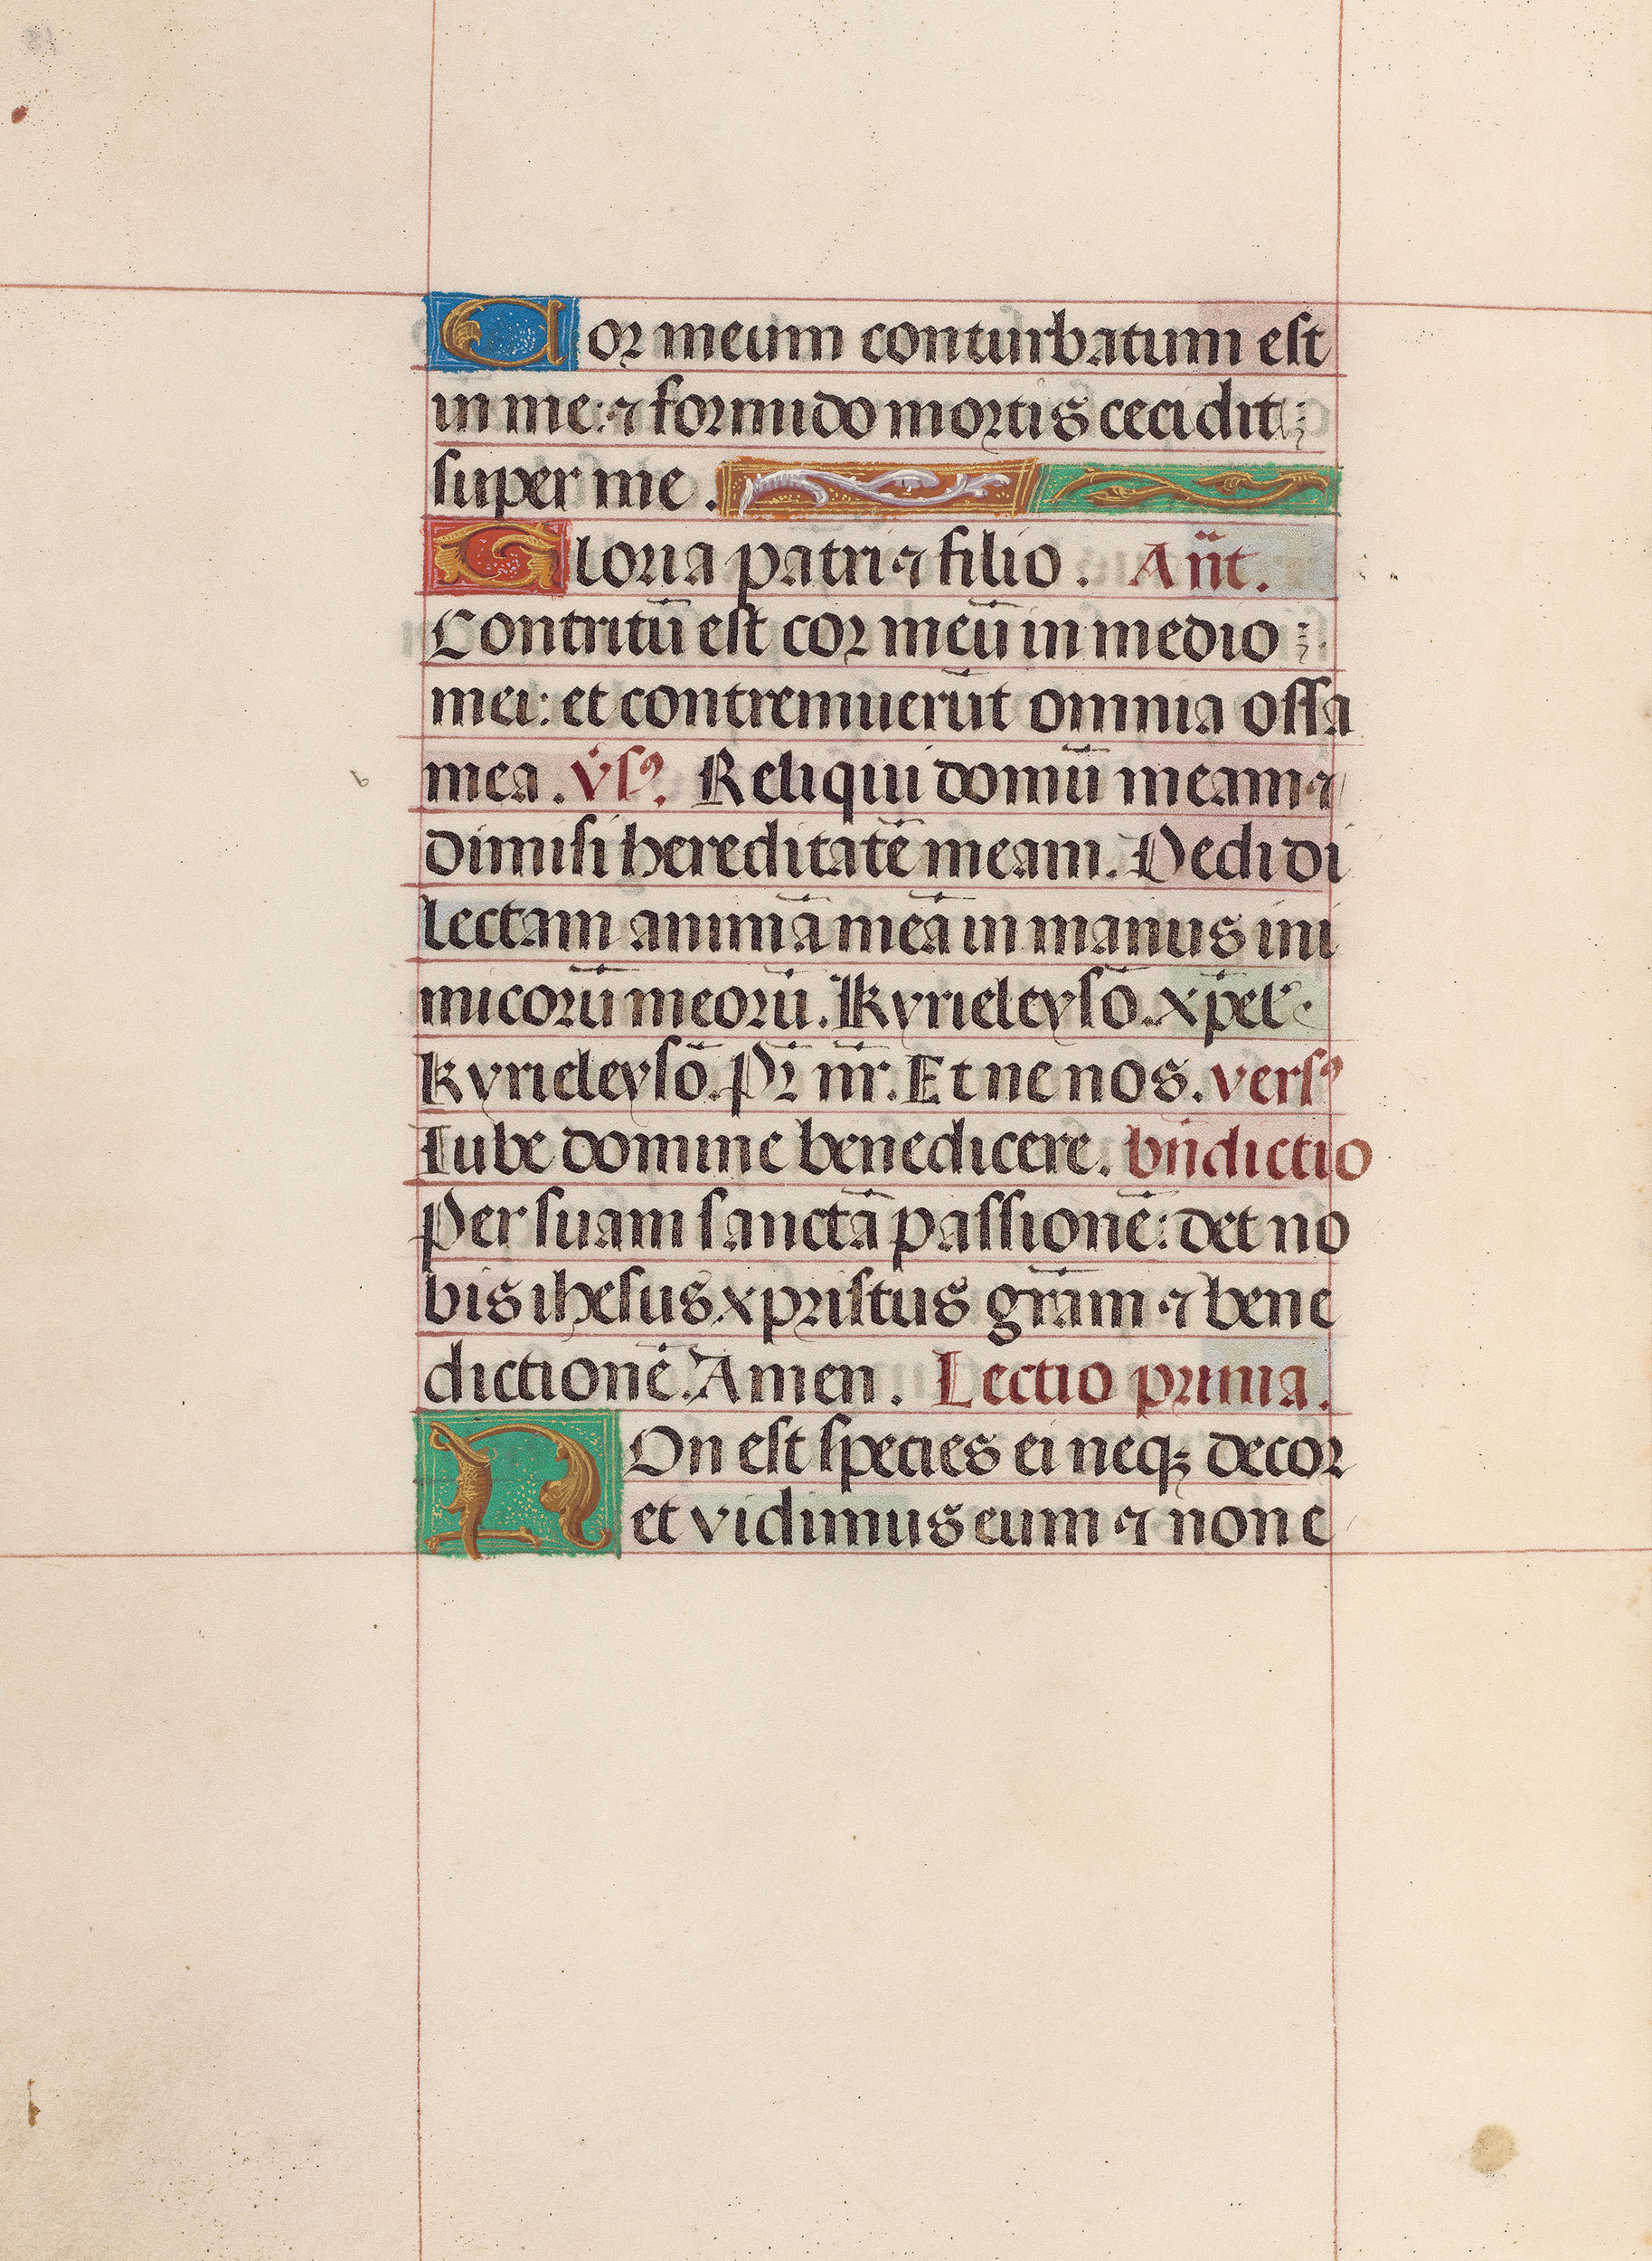 Cor meum conturbatum est
in me: ⁊ formido mortis cecidit
super me.
Gloria patri ⁊ filio. Añt.
Contritū est cor meū in medio
mei: et contremuerūt omnia ossa
mea. v̇sꝰ. Reliqui domū meam ⁊
dimisi hereditatē meam. Dedi di
lectam animā meā in manus ini
micorū meorū. Kyrieleysō. xp̄el'.
Kyrieleysō. Pr̄ nr̄. Et ne nos. versꝰ
Iube domine benedicere. bn̄dictio
Per suam sanctā passionē: det no
bis ihesus xpristus gr̄am ⁊ bene
dictionē. Amen. Lectio prima.
NOn est species ei neqꝫ decor
et vidimus eum ⁊ non e